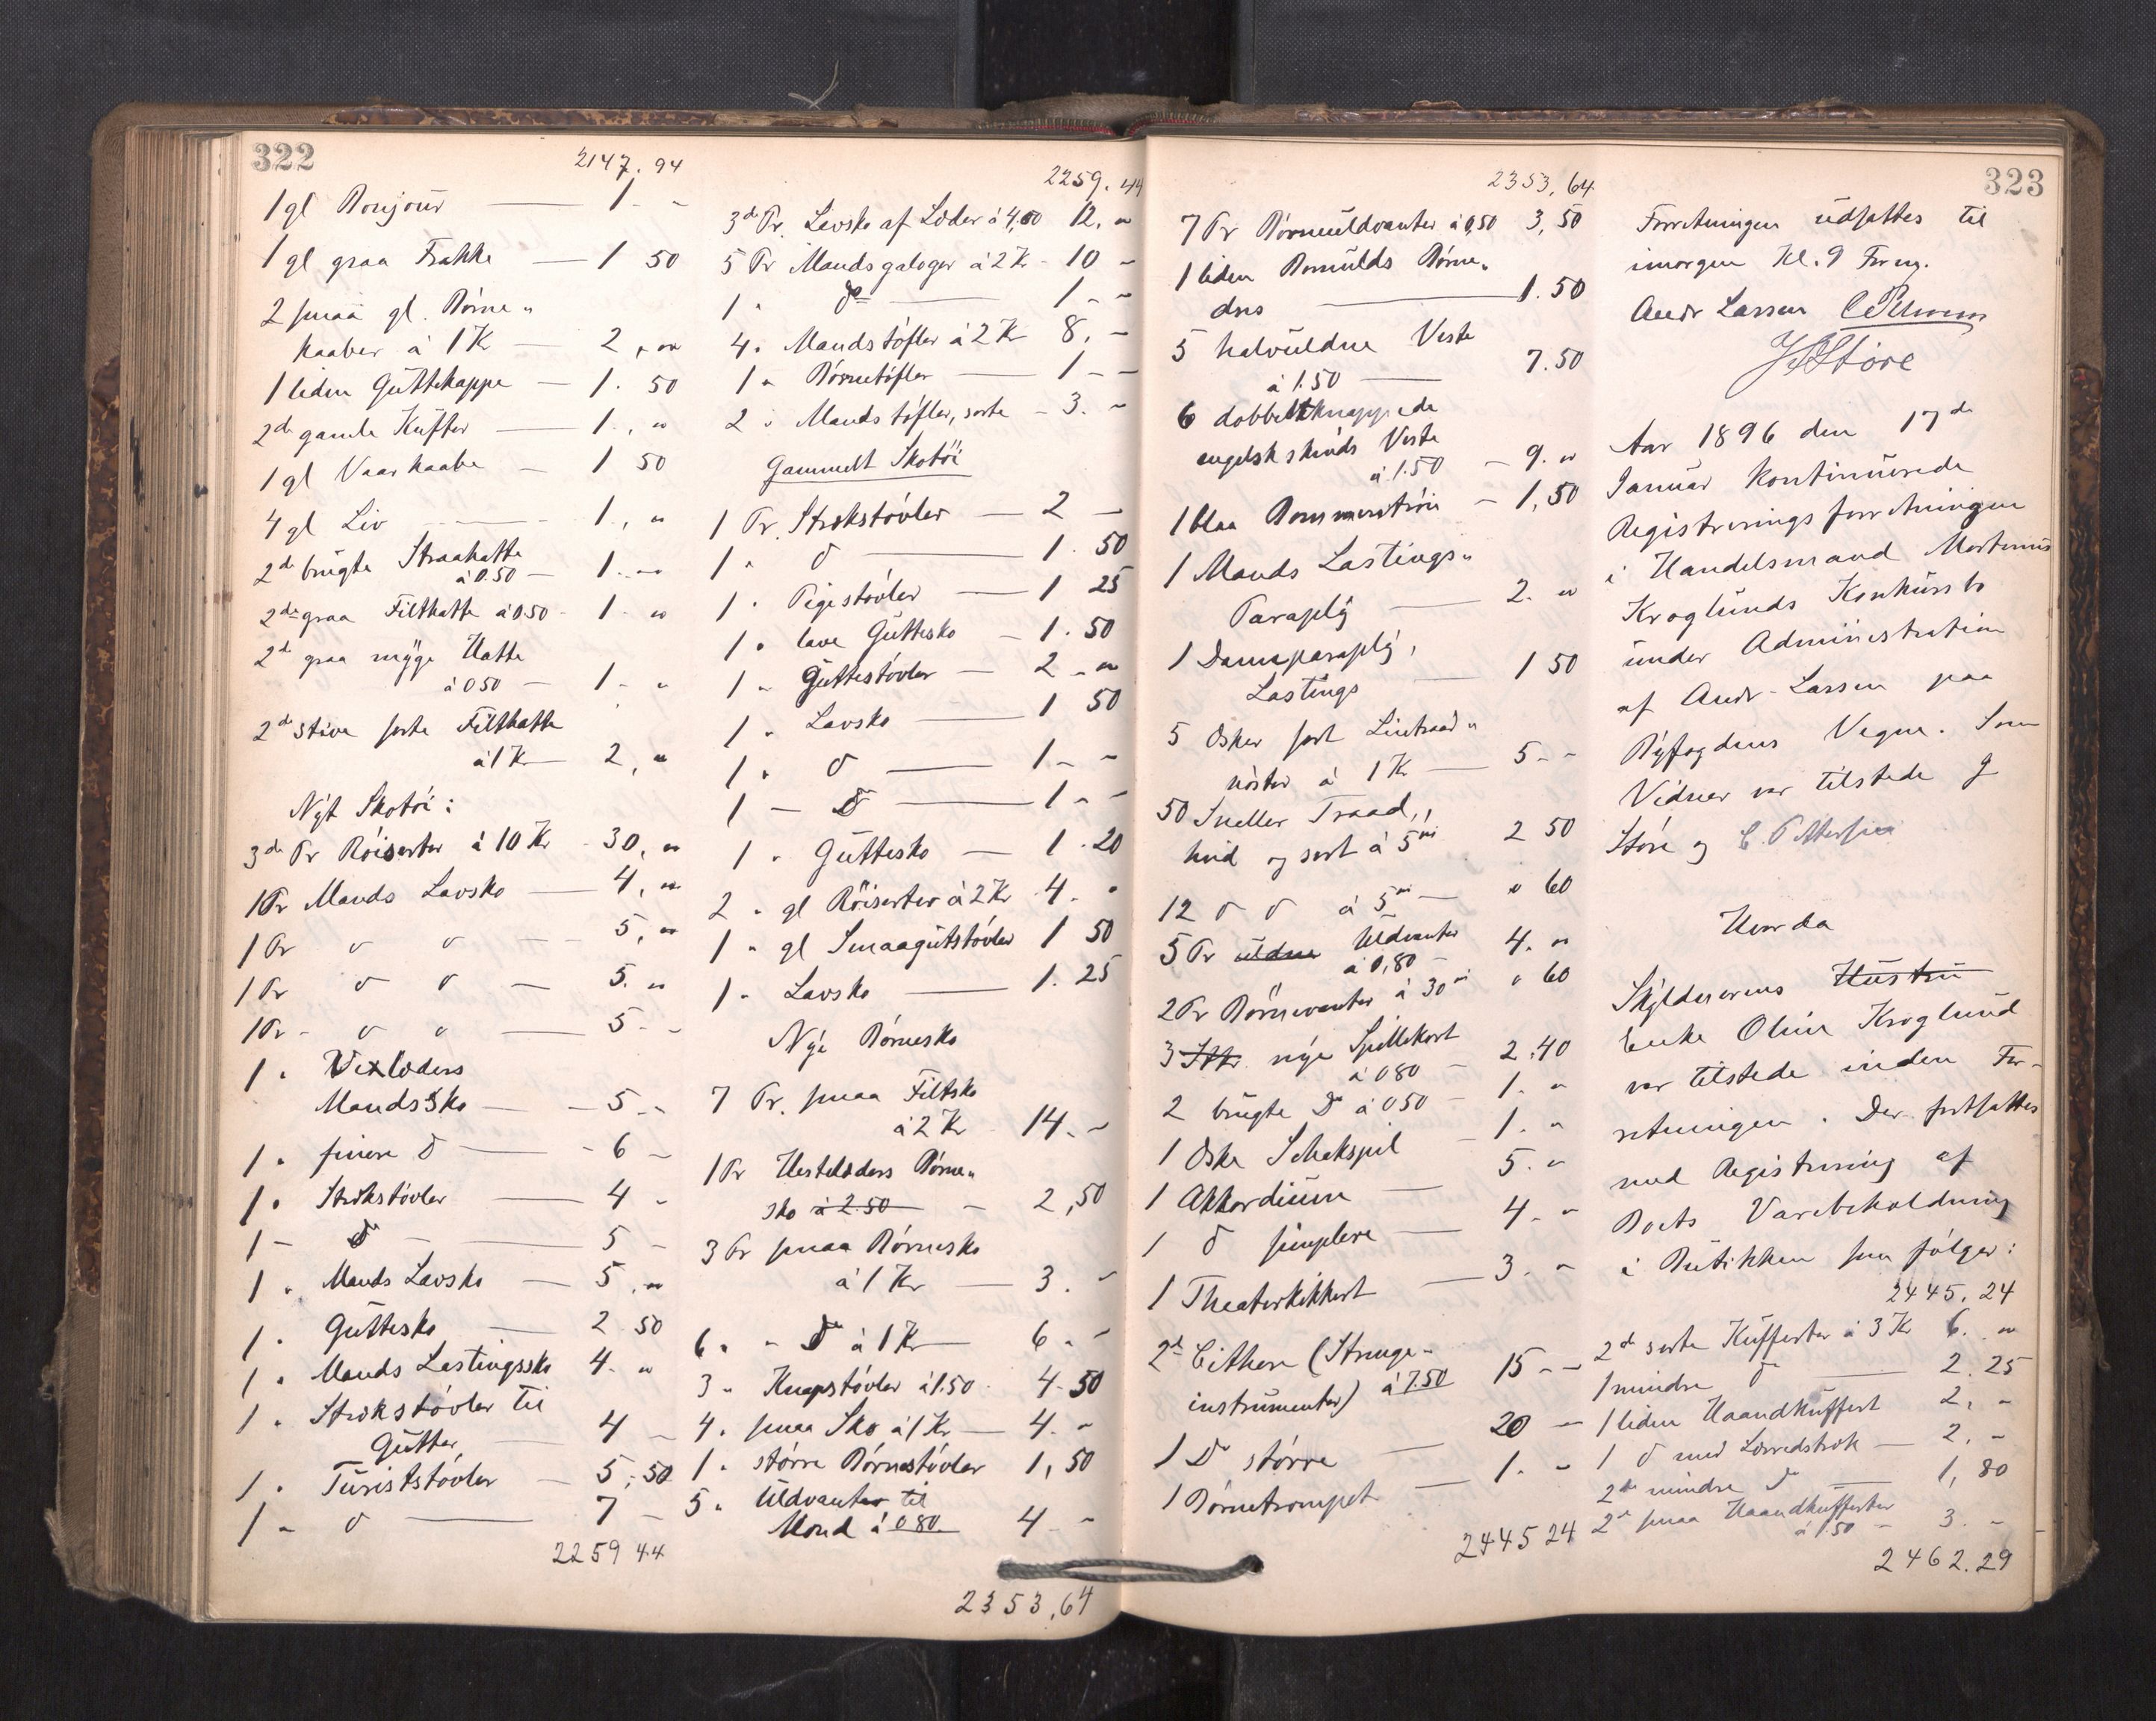 322
2147.94
1 gl Bonjour — 1 - -
1 gl graa Frakke — 1 50
2 smaa gl. Børne-
kaaber à 1 K — 2, "
1 liden Guttekappe — 1. 50
2de gamle Kufter — 1., "
1 gl Vaarkaabe — 1 50
4 gl Liv — 1., "
2de brugte Straahatte
à 0.50 — 1. "
2de graa Filthatte à 0.50 - 1. "
2de graa myge Hatte
à 0 50 — 1 - "
2de stive sorte Filthatte
à 1 K — 2, "
Nyt Skotøi:
3de Pr Røiserter à 10 Kr - 30, "
1 Pr Mands Lavsko — 4, "
1 Pr d d — 5, "
1 Pr d d — 5. "
1 Pr - d d — 5 - -
1 " Vixlæders
Mandssko — 5 - -
1 " finere d — 6 -
1 " Strikstøvler — 4 -
1 - do — 5 -
1 " Mands Lavsko — 5, "
1 " Guttesko — 2 50
1 " Mands Lastingssko 4. "
1 " Strikstøvler til
Gutter — 4 -
1 " Turiststøvler — 5,50
1 " d — 7 -
2259 44
2259.44
3de Pr. Lavsko af Læder à 4,00 12. "
5 Pr Mandsgaloger à 2 K - 10 -
1 " do — 1 - -
4 " Mandstøfler à 2 K 8, -
1 " Børnetøfler — 1 - -
2 " Mandstøfler, sorte - 3. -
Gammelt Skotøi
1 Pr. Strikstøvler — 2 -
1 " d — 1. 50
1 " Pigestøvler — 1 25
1 " lave Guttesko — 1. 50
1 " Guttestøvler — 2 - "
1 " Lavsko — 1 50
1 " d — 1 - -
1 — d — 1 - -
1 " Guttesko — 1. 20
2 " gl Røiserter à 2 Kr 4. "
1 " gl Smaagutstøvler 1 50
1 " Lavsko — 1. 25
Nye Børnesko
7 Pr. smaa Filtsko
à 2 K - 14. -
1 Pr Hestelæders Børne-
sko à 2.50 - 2,50
3 Pr smaa Børnesko
à 1 Kr — 3. -
6 " - do à 1 K — 6 - -
3 " Knapstøvler à 1.50 - 4-50
4 " smaa Sko à 1 Kr — 4. -
1 " større Børnestøvler 1,50
5 " Uldvanter til
Mænd à 0 80 4 - -
2353,64
2353,64
7 Pr Børneuldvanter à 0,50 3,50
1 liden Bomulds Børne-
dres — 1.50
5 halvuldne Veste
à 1.50 — 7.50
6 dobbeltknappede
engelskskinds Veste
à 1.50 - 9. "
1 blaa Bommerstrøie - 1,50
1 Mands Lastings-
Paraply — 2. "
1 Dameparaply,
Lastings — 1 50
5 Æsker sort Lintraad-
nøster à 1 K — 5 - -
50 Sneller Traad,
hvid og sort à 5 øre 2 50
12 d d à 5 øre — " 60
5 Pr uldne Uldvanter
à 0,80 - 4. "
2 Pr Børnevanter à 30 øre " 60
3 Stkr. nye Spillekort
à 0 80 - 2.40
2 brugte do à 0 50 - 1. "
1 Æske Schakspil - 1. "
1 Akkordium — 5. "
1 d simplere — 4. "
1 Theaterkikkert — 3. -
2de Cithere (Strenge-
instrumenter) à 7.50 15 - -
1 do større — 20 -
1 Børnetrompet — 1. -
2445 24
323
Forretningen udsattes til
imorgen Kl. 9 Form.
Andr Larsen
Støre
Aar 1896 den 17de
Januar kontinuerede
Registreringsforretningen
i Handelsmand Martinus
Kroglunds Konkursbo
under Administration
af Andr. Larsen paa
Byfogdens Vegne. Som
Vidner var tilstede J
Støre og C. Pettersen
Hvorda
Skyldnerens Hustru
Enke Oline Kroglund
var tilstede under For-
retningen. Der fortsattes
med Registrering af
Boets Varebeholdning
i Butikken som følger:
2445,24
2de sorte Kufferter à 3 Kr 6. "
1 mindre d — 2.25
1 liden Haandkuffert 2, -
1 d med Lærredstræk — 2. -
2de mindre do — 1,80
2de smaa Haandkufferter
à 1.50 - 3. -
2462.29